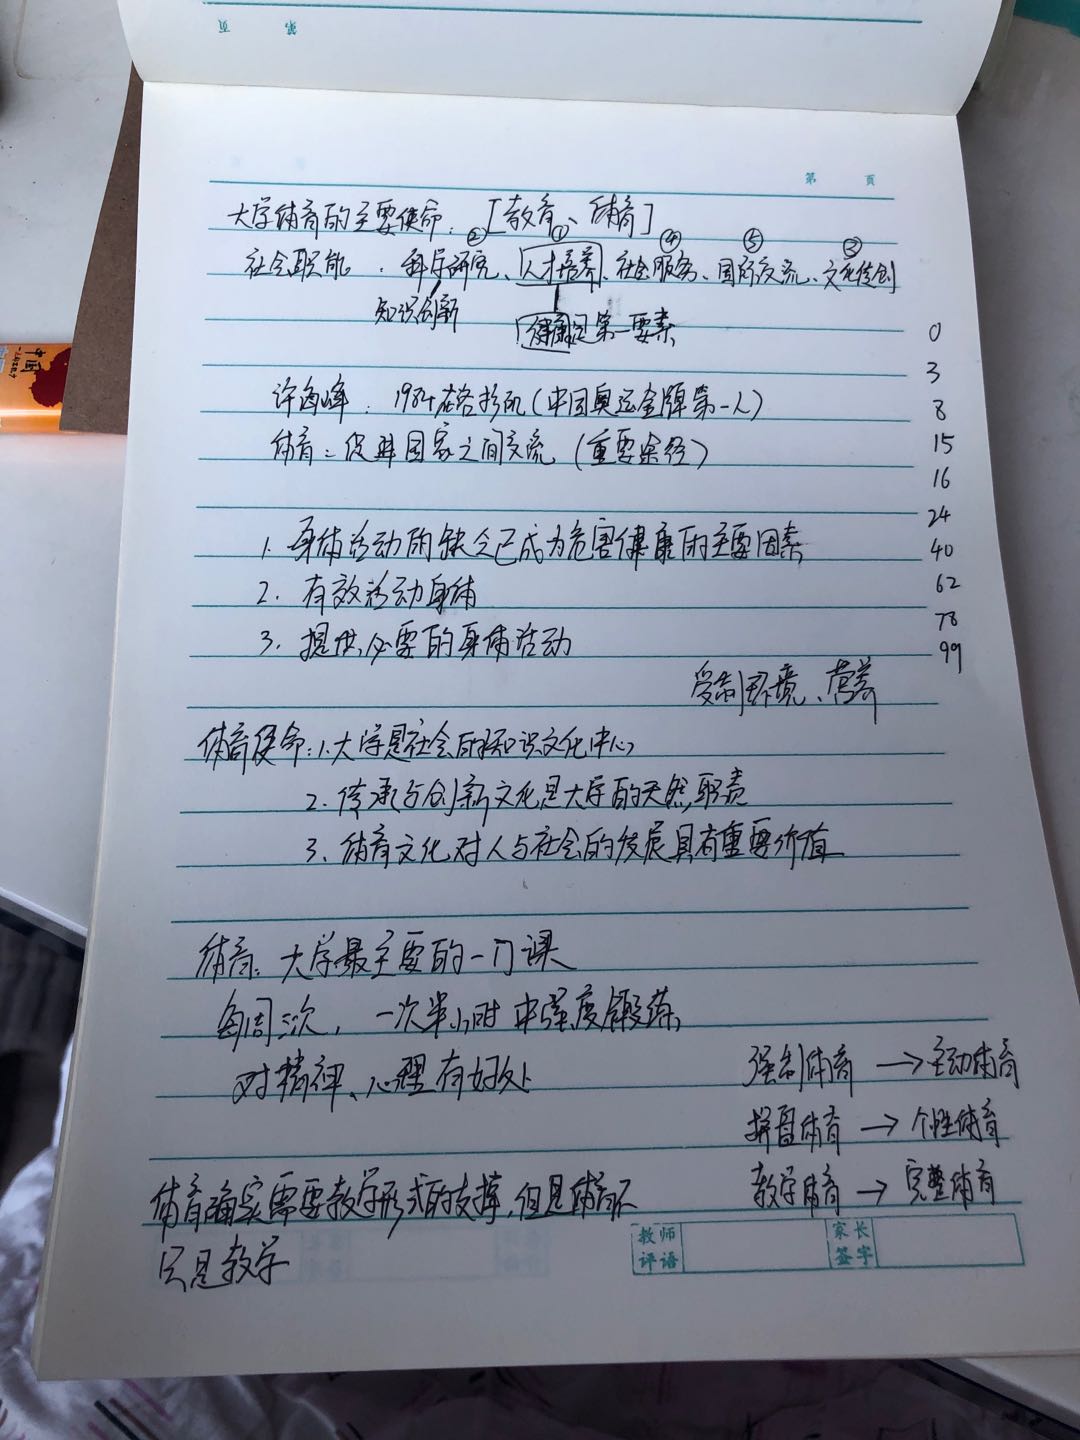 第 页
第 頁
大学体育的主要使命：[教育、体育]
② ① ④ ⑤ ③
社会职能：科学研究、人才培养、社会服务、国际交流、文化传创
知识创新
健康是第一要素
0
3
许海峰：1984在洛杉矶(中国奥运金牌第一人)
8
体育：促进国家之间交流(重要途径)
15
16
24
1. 身体活动的缺乏已成为危害健康的主要因素
40
2. 有效活动身体
62
78
3. 提供必要的身体活动
99
受制环境、营养
体育使命：1.大学是社会的知识文化中心
2. 传承与创新文化是大学的天然职责
3. 体育文化对人与社会的发展具有重要价值
体育：大学最主要的一门课
每周三次，一次半小时中强度锻炼
对精神、心理有好处
强制体育→主动体育
拼盘体育→个性体育
教学体育→完整体育
体育确实需要教学形式的支撑，但是体育不
只是教学
教师评语 家长签字
中国